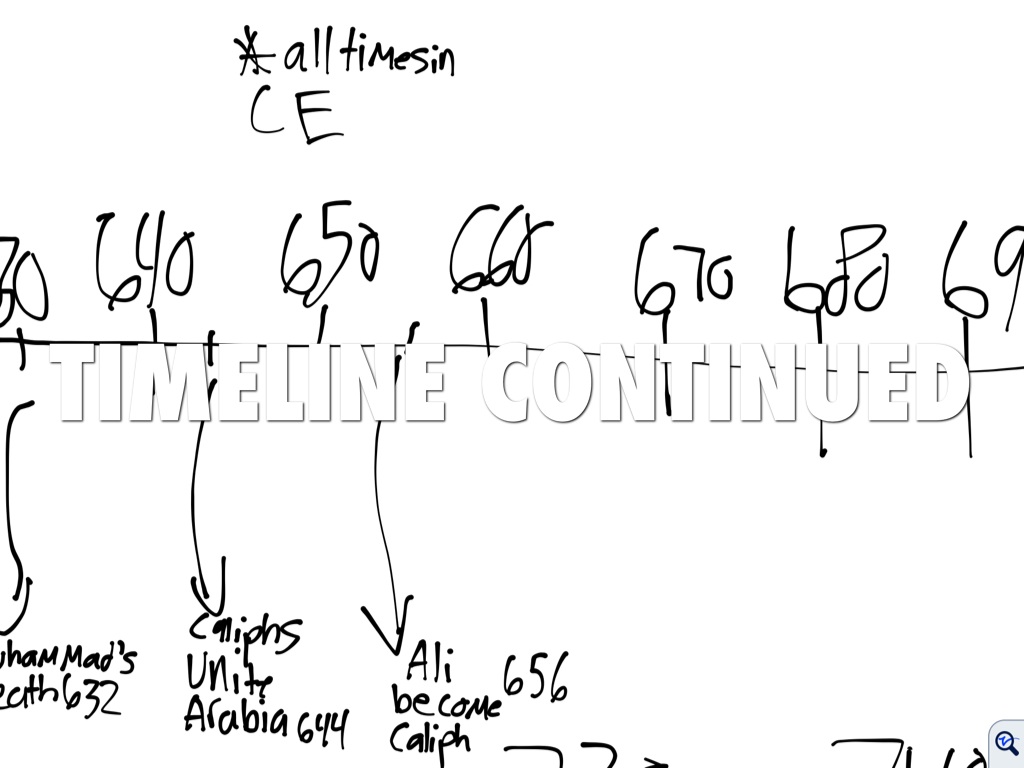 *all times in
CE
30 640 650 660 670 680 69
TIMELINE CONTINUED
uhammad's
eath 632
Caliphs
Unite
Arabia 644
Ali 656
become
Caliph